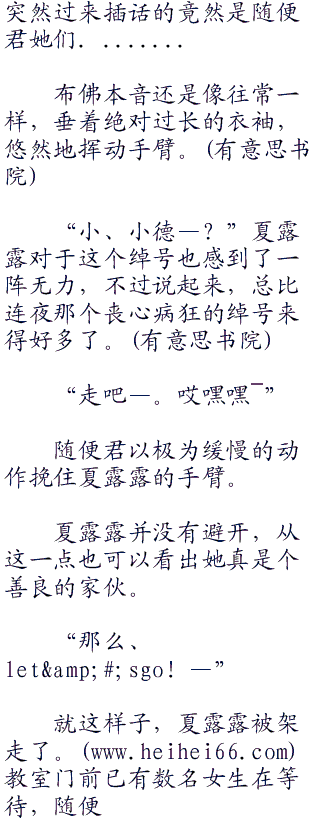 突然过来插话的竟然是随便
君她们．．．．．．．．
布佛本音还是像往常一
样，垂着绝对过长的衣袖，
悠然地挥动手臂。(有意思书
院)
“小、小德—？”夏露
露对于这个绰号也感到了一
阵无力，不过说起来，总比
连夜那个丧心病狂的绰号来
得好多了。(有意思书院)
“走吧—。哎嘿嘿¯”
随便君以极为缓慢的动
作挽住夏露露的手臂。
夏露露并没有避开，从
这一点也可以看出她真是个
善良的家伙。
“那么、
let&amp;#;sgo！—”
就这样子，夏露露被架
走了。(www.heihei66.com)
教室门前已有数名女生在等
待，随便